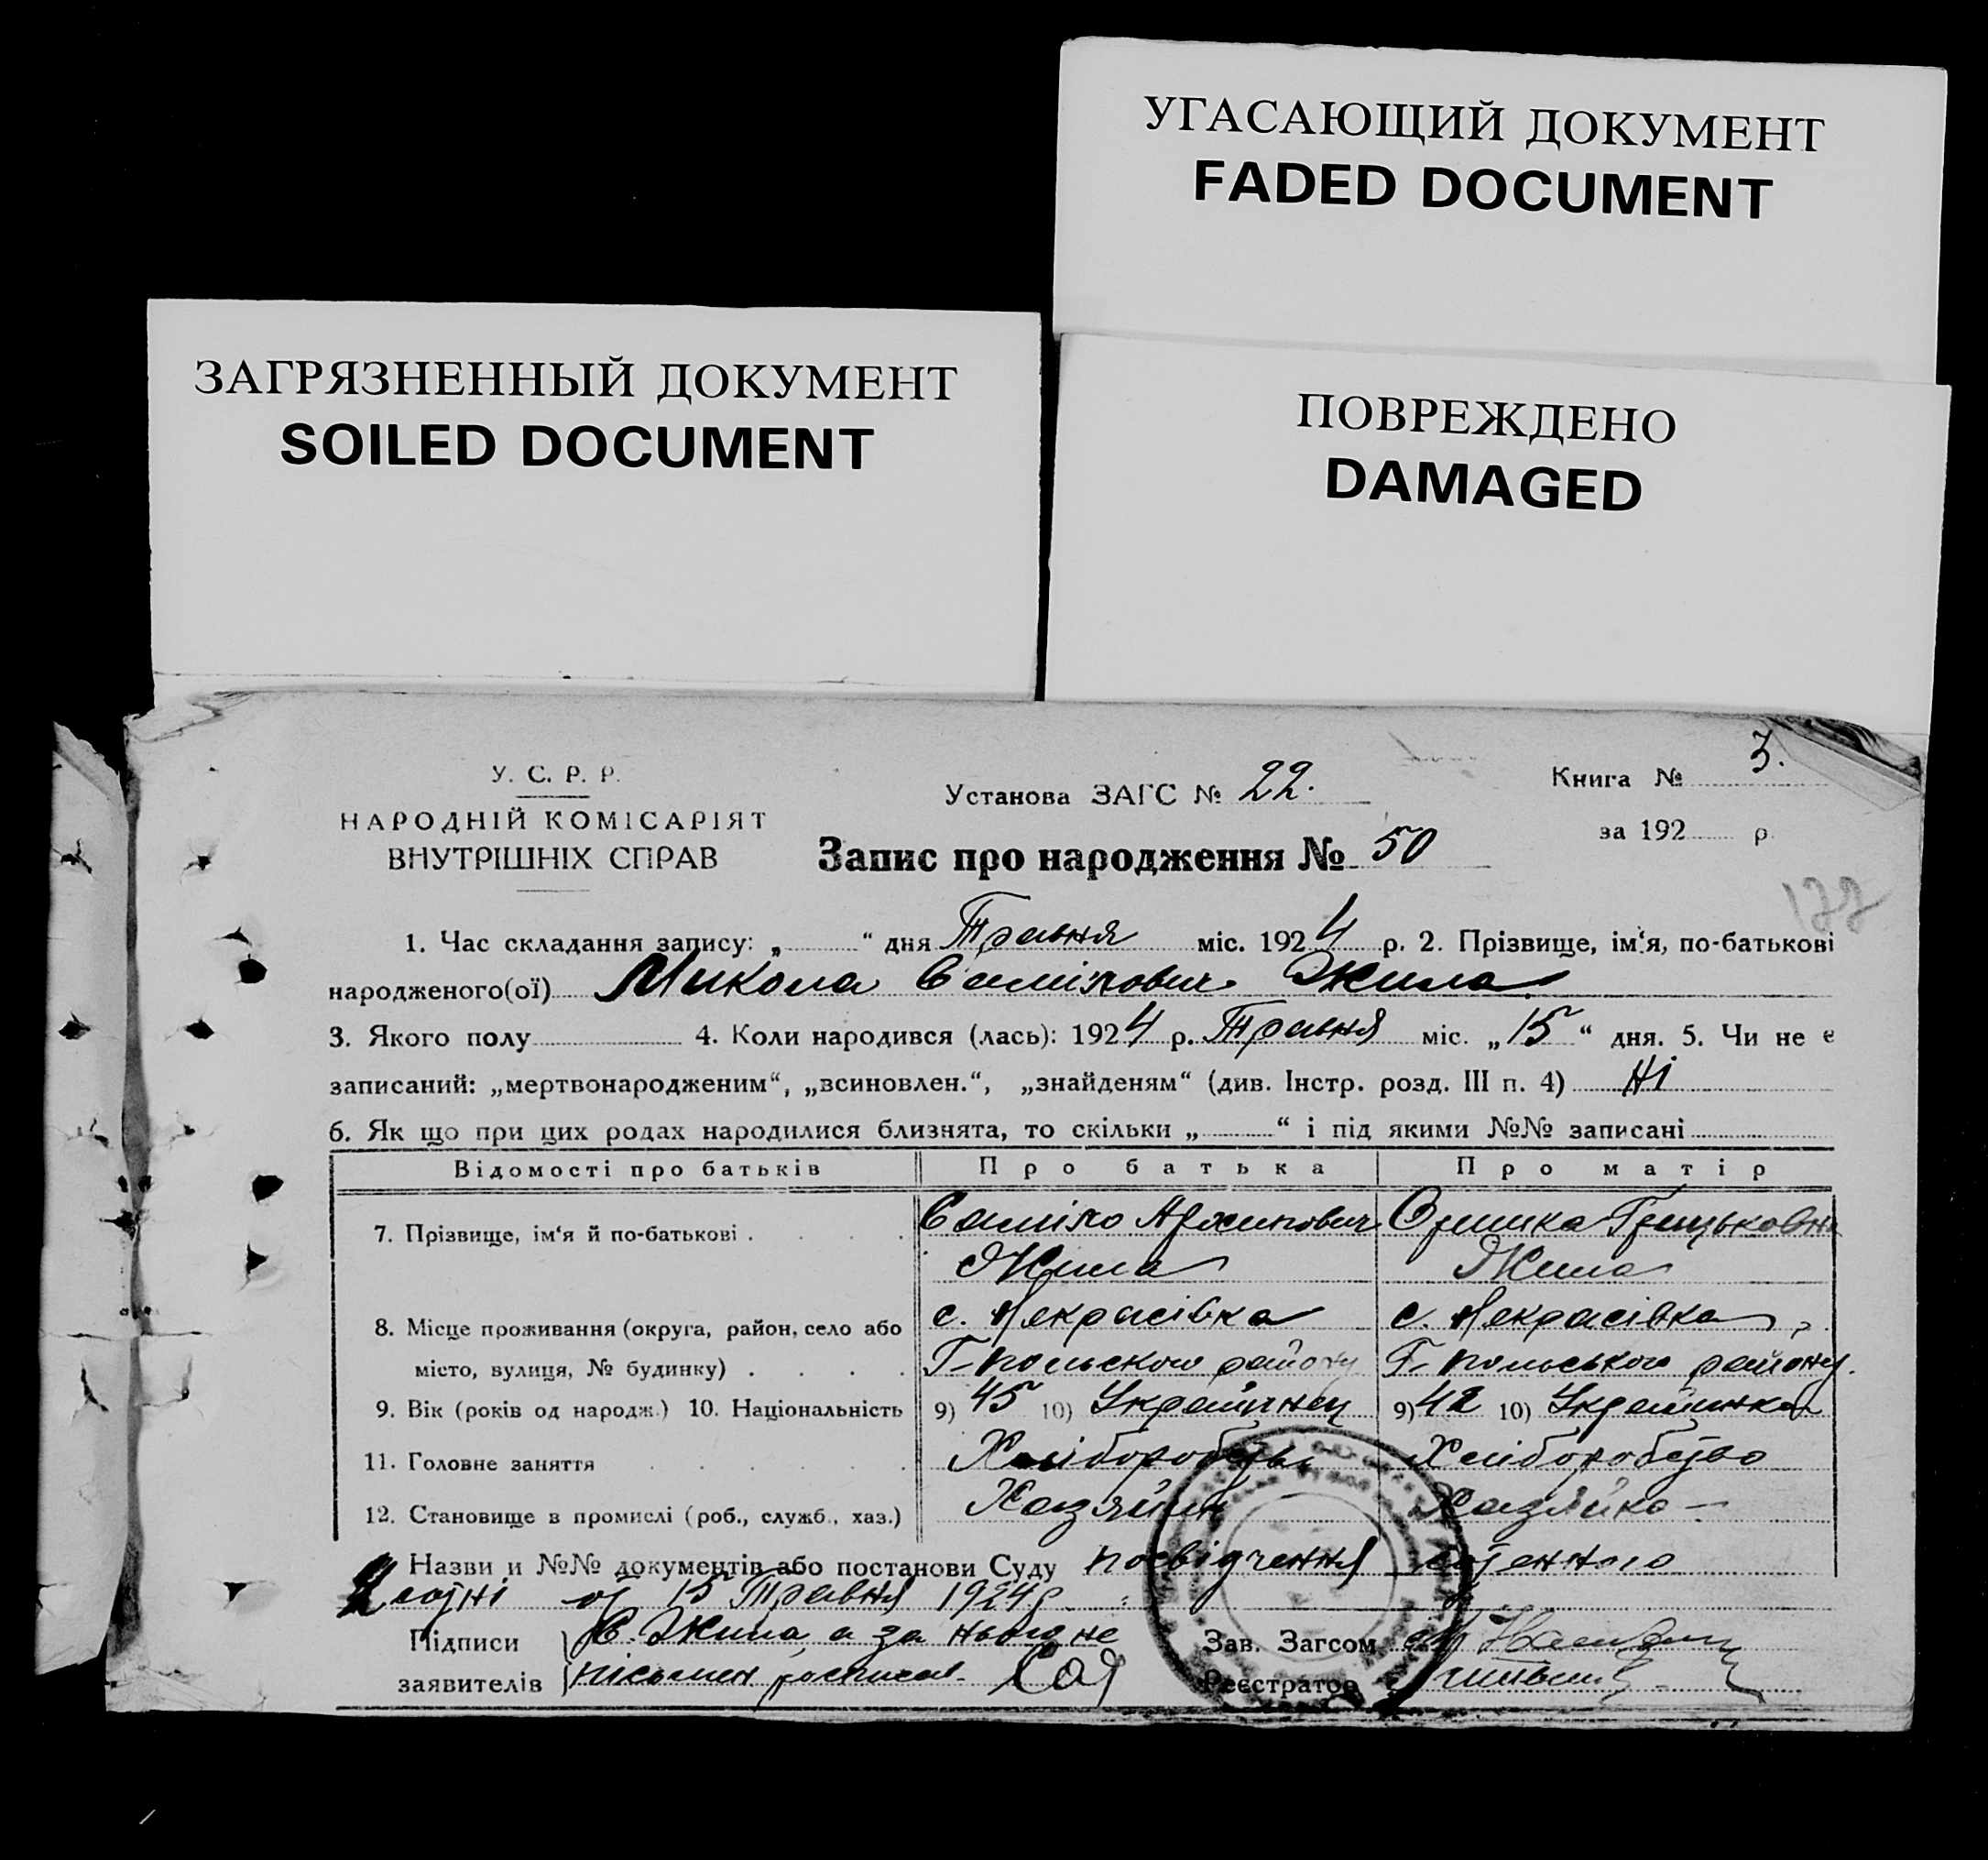 УГАСАЮЩИЙ ДОКУМЕНТ
FADED DOCUMENT
ЗАГРЯЗНЕННЫЙ ДОКУМЕНТ
SOILED DOCUMENT
ПОВРЕЖДЕНО
DAMAGED
У. С. Р. Р.
НАРОДНІЙ КОМІСАРІЯТ
ВНУТРІШНІХ СПРАВ
Установа ЗАГС № 22.
Книга № 3.
за 192 р.
Запис про народження № 50
177
1. Час складання запису: „ “ дня Травня міс. 1924 р. 2. Прізвище, ім‘я, по-батькові
народженого(ої) Микола Жила
3. Якого полу 4. Коли народився (лась): 1924 р. Травня міс. „15“ дня. 5. Чи не є
записаний: „мертвонародженим“, „всиновлен.“, „знайденям“ (див. Інстр. розд. III п. 4) Ні
6. Як що при цих родах народилися близнята, то скільки „ “ і під якими №№ записані
Відомості про батьків Про батька Про матір
7. Прізвище, ім‘я й по-батькові . . . . Архипович Оришка Грицьковна
Жила Жила
8. Місце проживання (округа, район, село або с. Некрасівка с. Некрасівка
місто, вулиця, № будинку) . . . . Г-польского району Г-польського району.
9. Вік (років од народж.) 10. Національність 9) 45 10) Українец 9) 42 10) Українка
11. Головне заняття . . . . . . Хлібороб Хліборобство
12. Становище в промислі (роб., служб., хаз.) Хазяйин Хазяйка –
Назви и №№ документів або постанови Суду посвідчення
15 Травня 1924 р
Підписи Жила а за нього не
заявителів письмен росписав
Зав. Загсом
Реєстратор